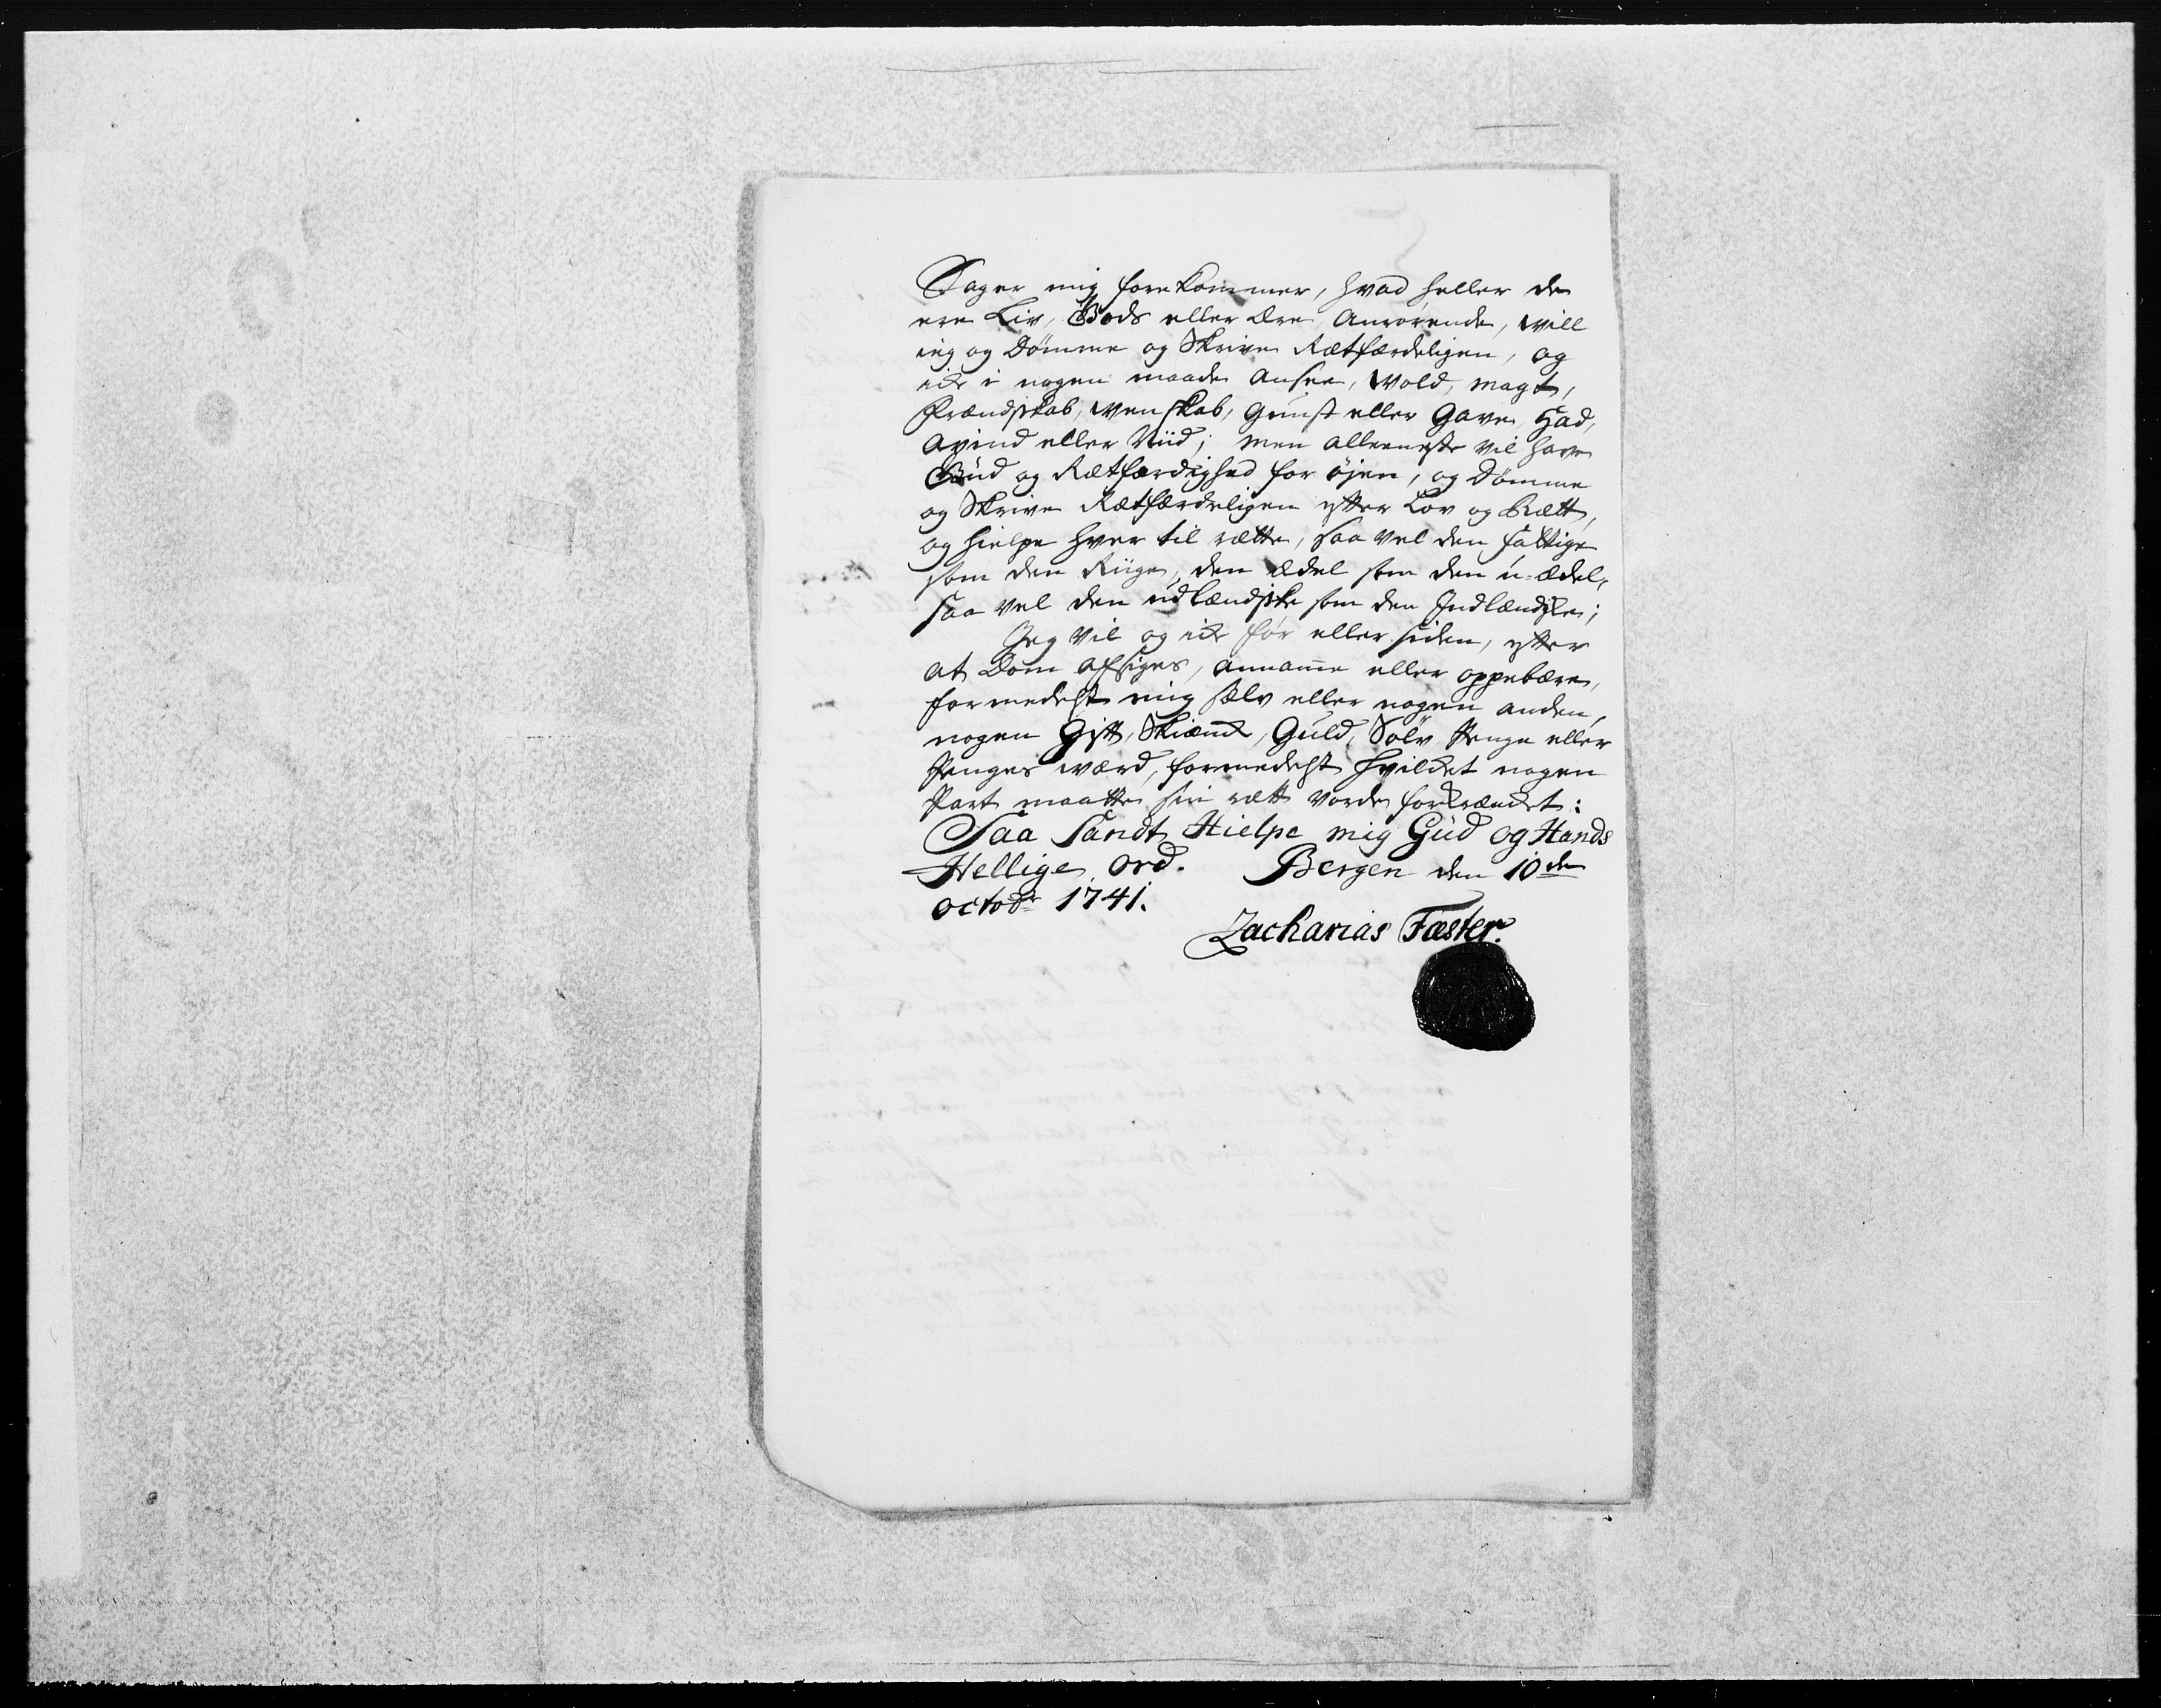 Sager mig forekommer, hvad heller de
ere Liv, Gods eller Ære Anrørende, will
ieg og Dömme og Skrive Retfærdeligen, og
icke i nogen maade Ansee, Wold, Magt,
Frændskab, Wenskab, Gunst eller Gave, Had,
Avind eller Niid; men alleeneste vil have
Gud og Retfærdighed for öjen, og Dömme
og Skrive Retfærdeligen efter Lov og Rætt,
og hielpe hver til rætte, saa vel den fattige
som den Riige, den ædel som den u-ædel,
saa vel den udlændiske som den Indlændiske;
Jeg vil og icke för eller siden, efter
at Dom afsiges, annamme eller oppebære,
formedelst mig selv eller nogen anden,
nogen Gifft, Skiænck, Guld, Sölv Penge eller
Penges wærd, formedelst hvilcket nogen
Part maatte sin rætt vorde forkræncket:
Saa Sandt Hielpe mig Gud og Hands
Hellige Ord. Bergen den 10de
octobr 1741.
Zacharias Fæster.